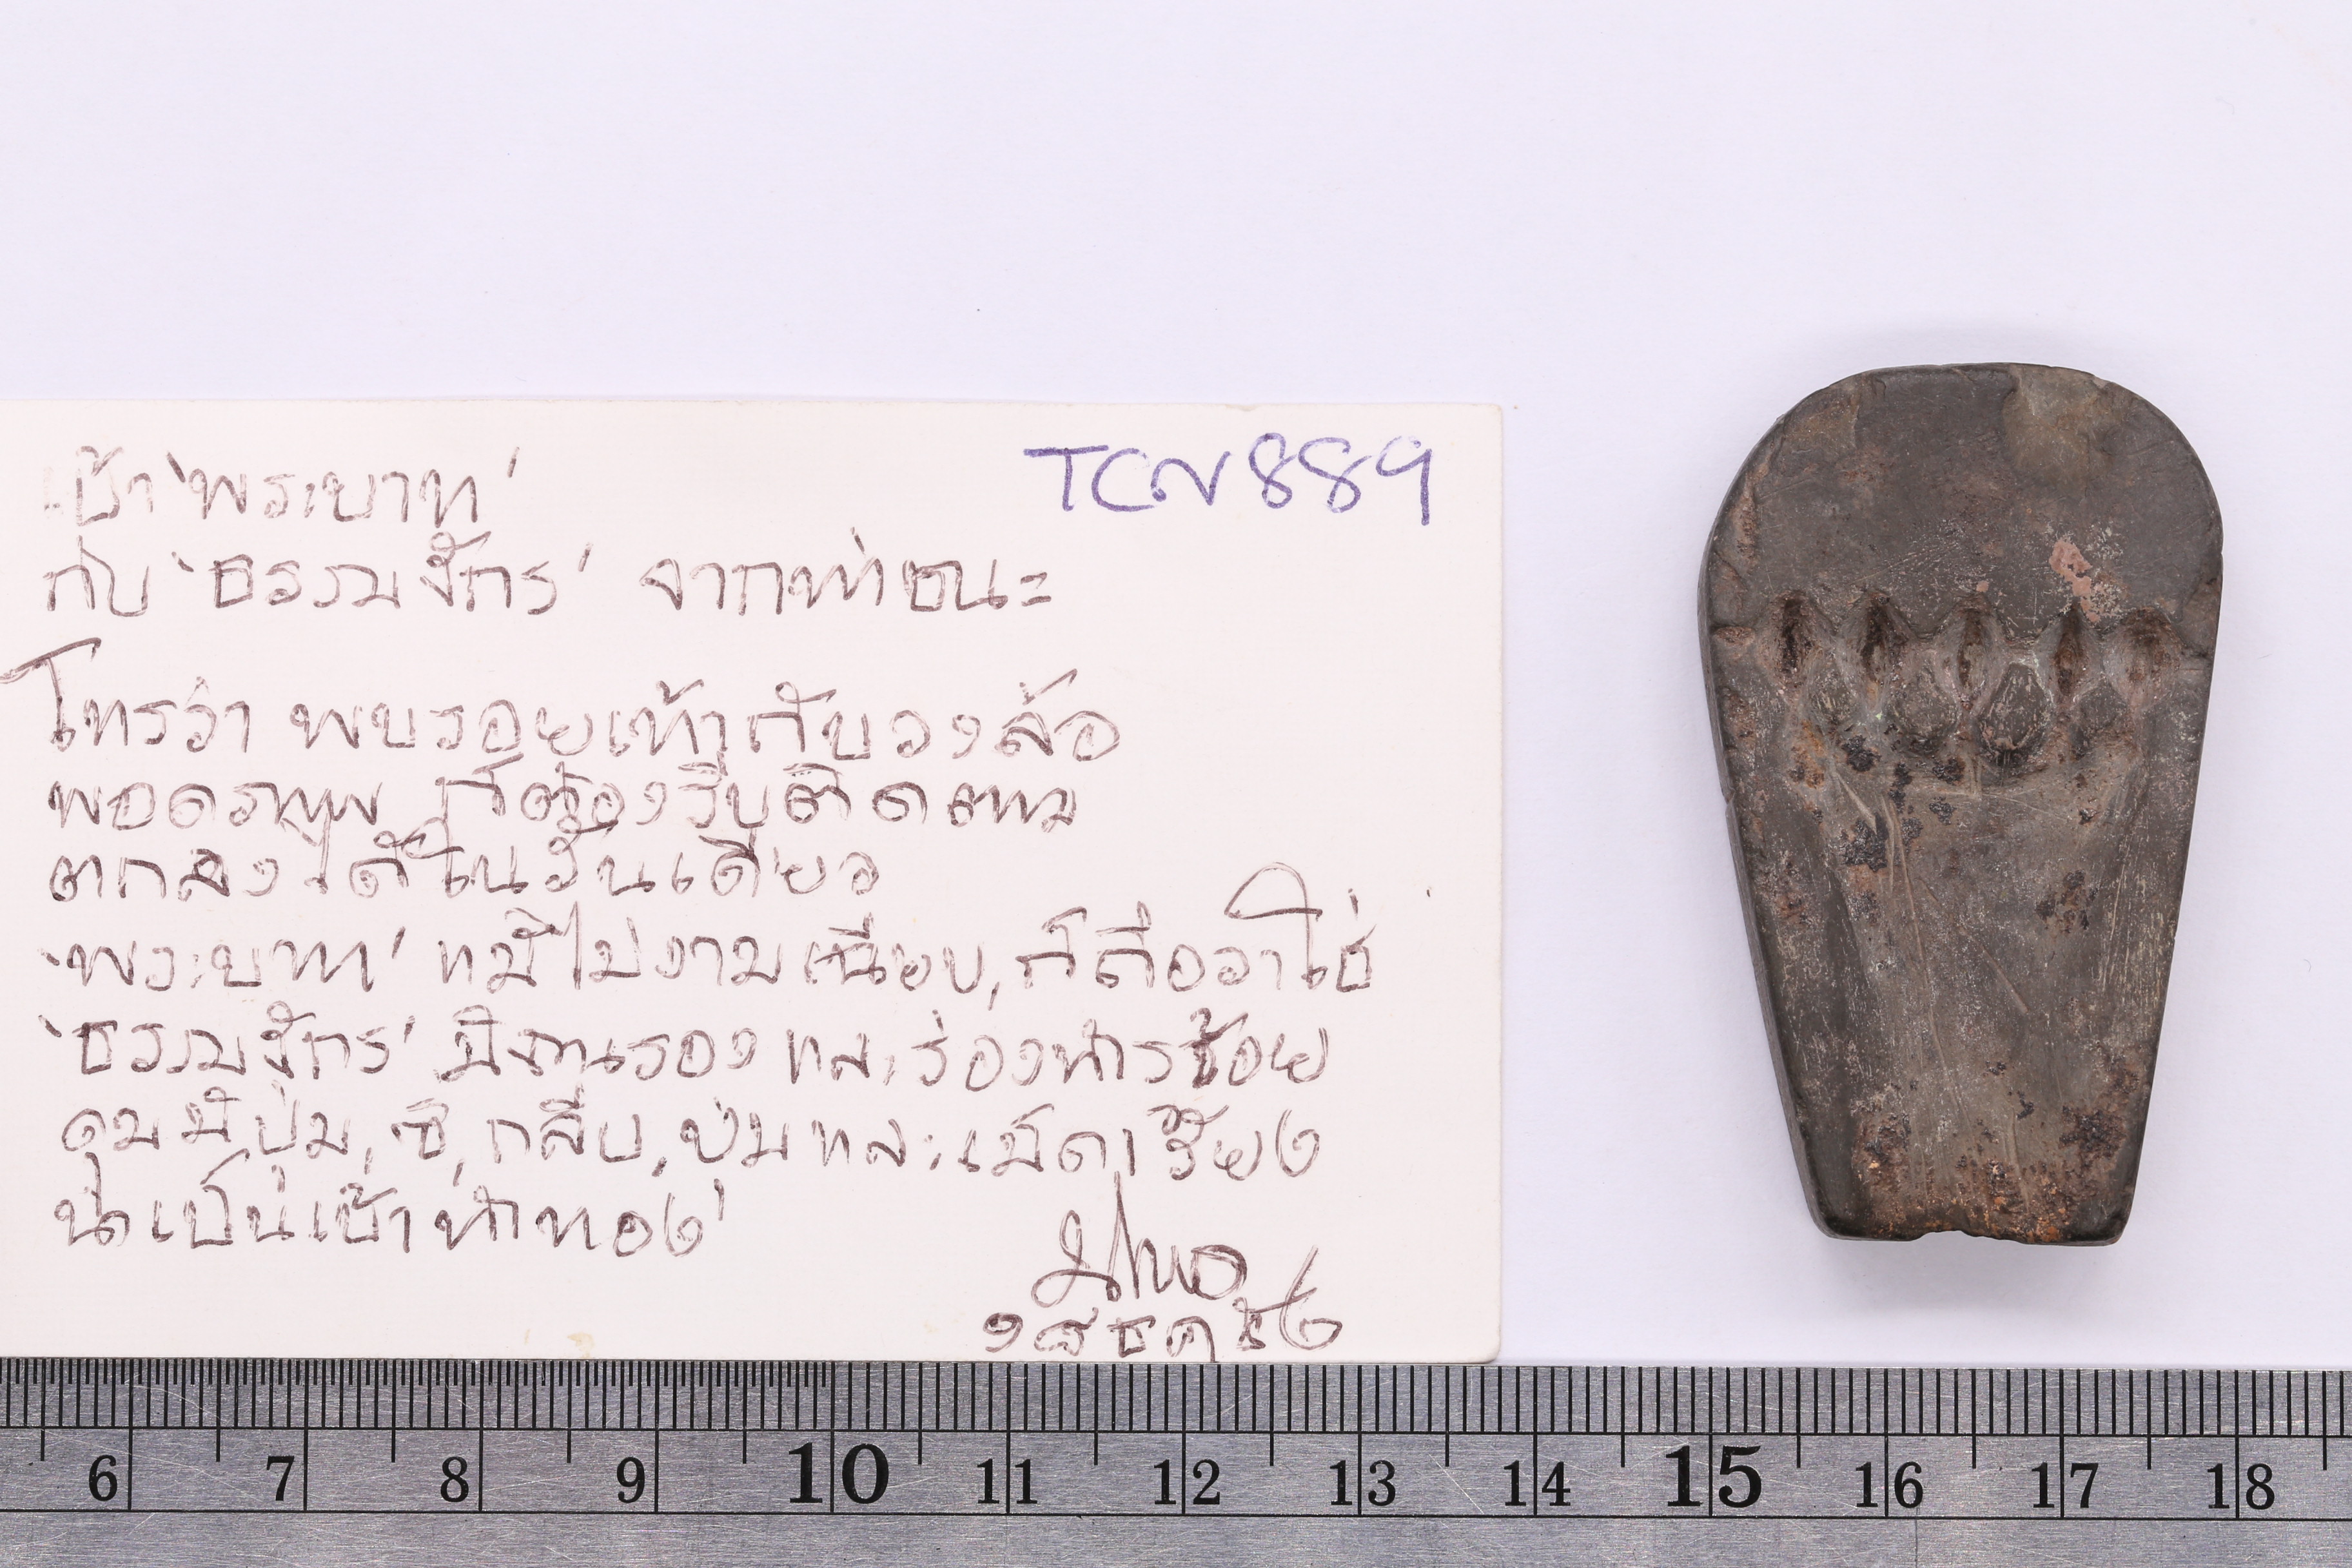 TCN 889
เบ้า 'พระบาท'
กับ 'ธรรมจักร' จากท่าชนะ
โทรว่า พบรอยเท้ากับวงล้อ
พอดูภาพ ก็ต้องรีบติดตาม
ตกลงได้ในวันเดียว
'พระบาท' แม้ไม่งามเนียบ, ก็ถือว่าใช่
'ธรรมจักร' มีฐานรอง และร่องทำรช้อย
ดุมมีปุ่ม, ซี่, กลีบ, ปุ่มและเม็ดเรียง
นี่เป็นเบ้าทำทอง'
6 7 8 9 10 11 12 13 14 15 16 17 18